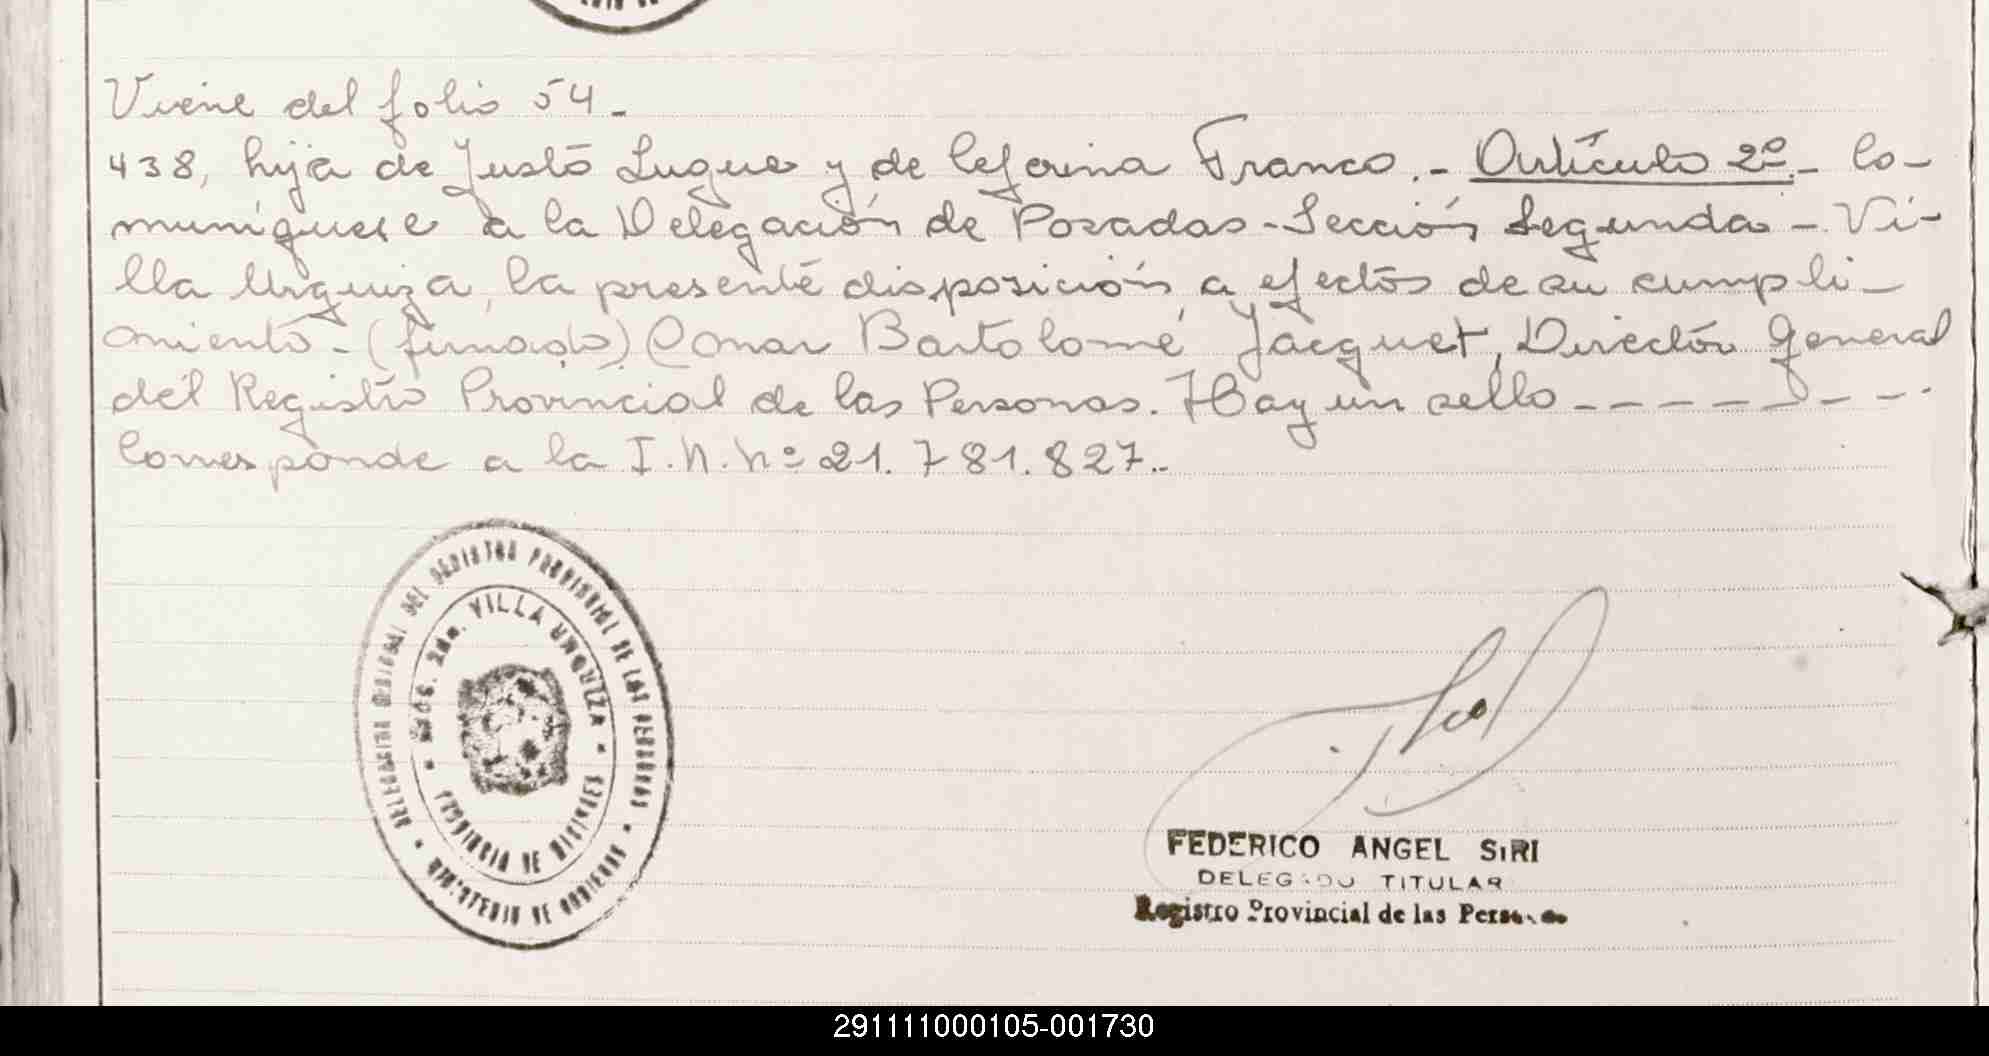 Viene del folio 54-
438, hija de Justo Luque y de Ceferina Franco.- Artículo 2º.- Co-
muníquese a la Delegación de Posadas-Sección Segunda - Vi-
lla Urquiza, la presente disposición, a efectos de su cumpli-
miento.- (firmado) Omar Bartolomé Jacquet, Director General
del Registro Provincial de las Personas. Hay un sello - - - - - - - -
Corresponde a la I.N.Nº 21.781.827.-
DEL REGISTRO PROVINCIAL DE LAS PERSONAS
MINISTERIO DE GOBIERNO
2da. VILLA URQUIZA
PROVINCIA DE MISIONES
FEDERICO ANGEL SIRI
DELEGADO TITULAR
Registro Provincial de las Personas
291111000105-001730